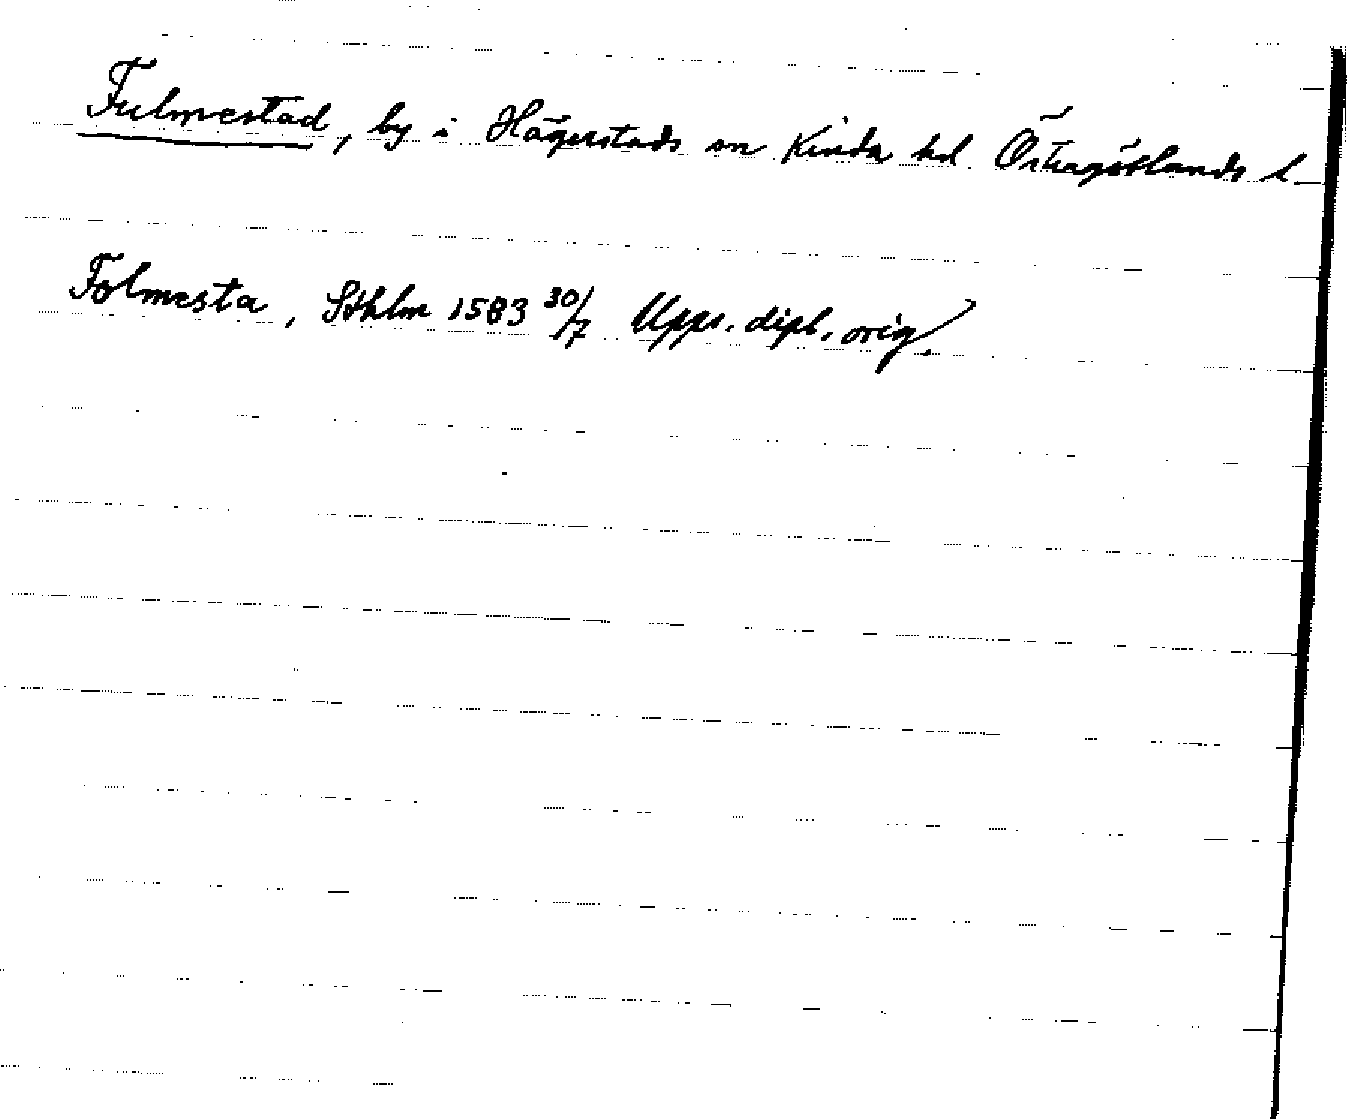 Fulmestad, by i Hägerstads sn Kinda hd Östergötlands l
Folmesta, Sthlm 1583 30/7 Upps. dipl. orig.